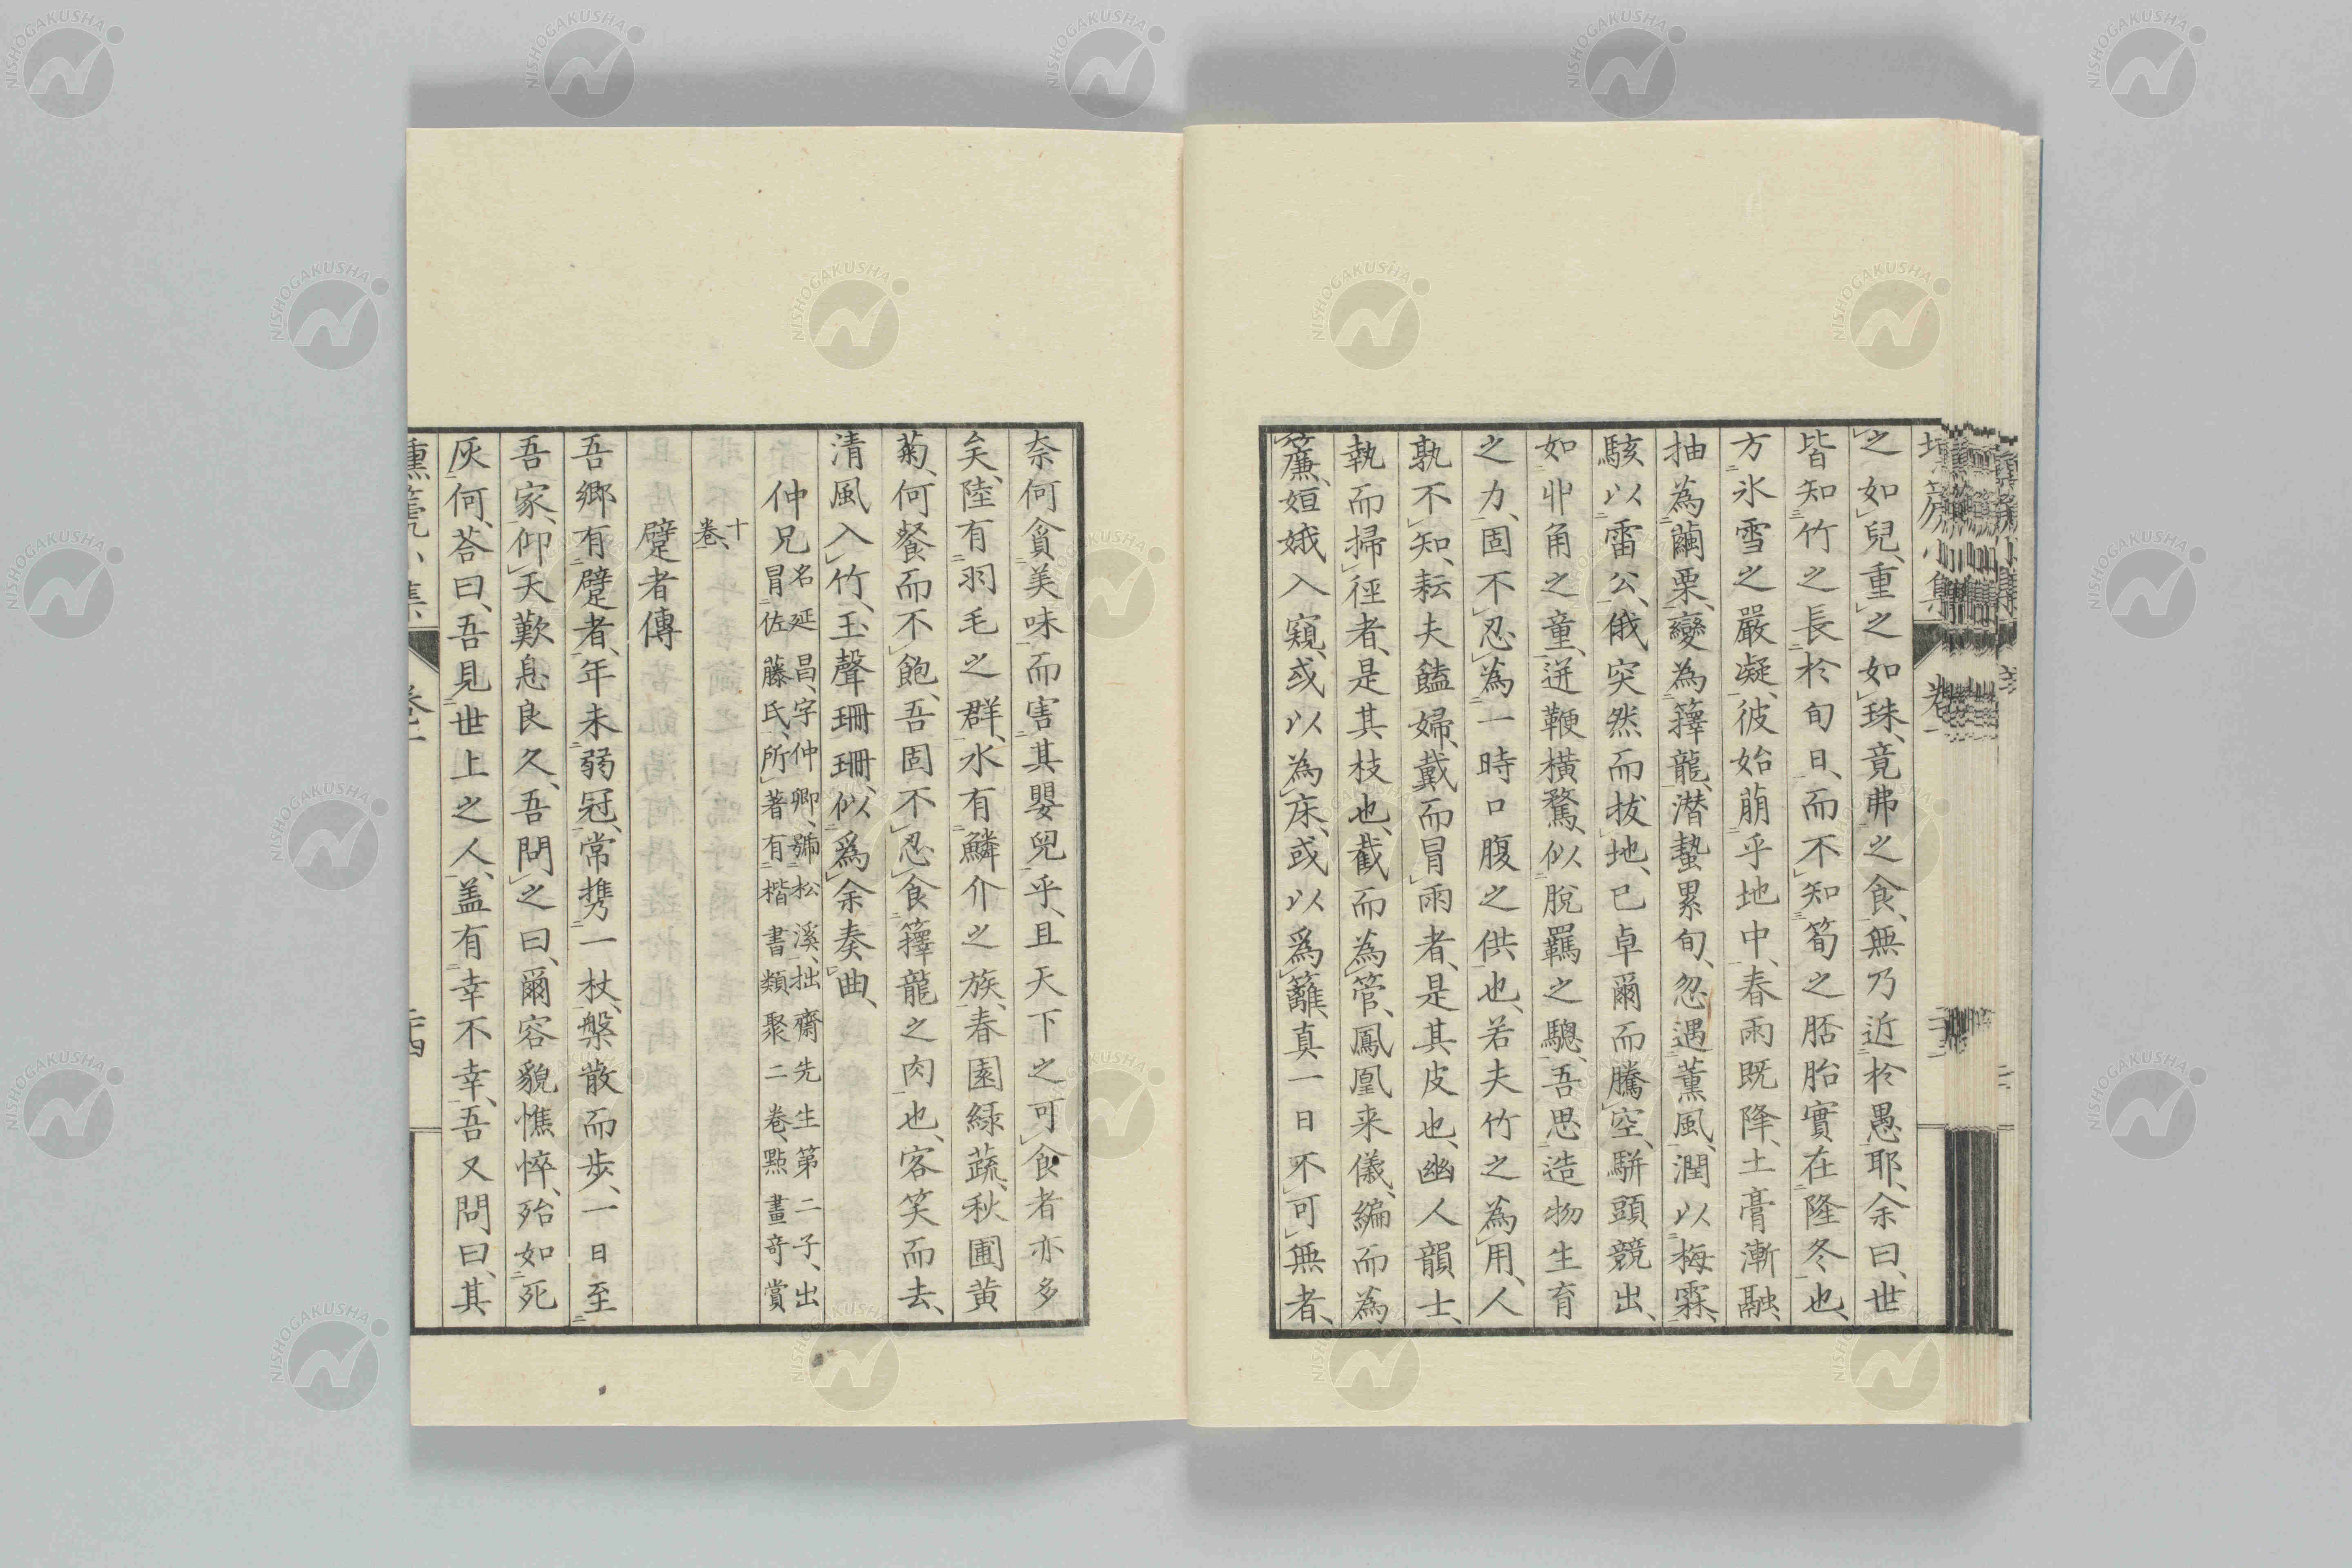 之如兒、重之如珠、竟弗之食、無乃近於愚耶、余曰、世
皆知竹之長於旬日、而不知筍之胚胎實在隆冬也、
方氷雪之嚴凝、彼始萠乎地中、春雨既降、土膏漸融、
抽為繭栗、變為籜龍、潜蟄累旬、忽遇薫風、潤以梅霖、
駭以雷公、俄突然而拔地、已卓爾而騰空、駢頭競出、
如丱角之童、迸鞭橫騖、似脫羈之驄、吾思造物生育
之力、固不忍為一時口腹之供也、若夫竹之為用、人
孰不知、耘夫饁婦、戴而冒雨者、是其皮也、幽人韻士、
執而掃徑者、是其枝也、截而為管、鳳凰来儀、編而為
簾、姮娥入窺、或以為床、或以爲籬、真一日不可無者、
奈何貪美味而害其嬰兒乎、且天下之可食者亦多
矣、陸有羽毛之群、水有鱗介之族、春園緑蔬、秋圃黄
菊、何餐而不飽、吾固不忍食籜龍之肉也、客笑而去、
清風入竹、玉聲珊珊、似爲余奏曲、
仲兄名延昌、字仲卿、號松溪、拙齋先生第二子、出
冒佐藤氏、所著有楷書類聚二卷、點畫奇賞
十
卷、
躄者傳
吾鄉有躄者、年未弱冠、常携一杖、槃散而歩、一日至
吾家、仰天歎息良久、吾問之曰、爾容貌憔悴、殆如死
灰何、荅曰、吾見世上之人、盖有幸不幸、吾又問曰、其
NISHOGAKUSHA